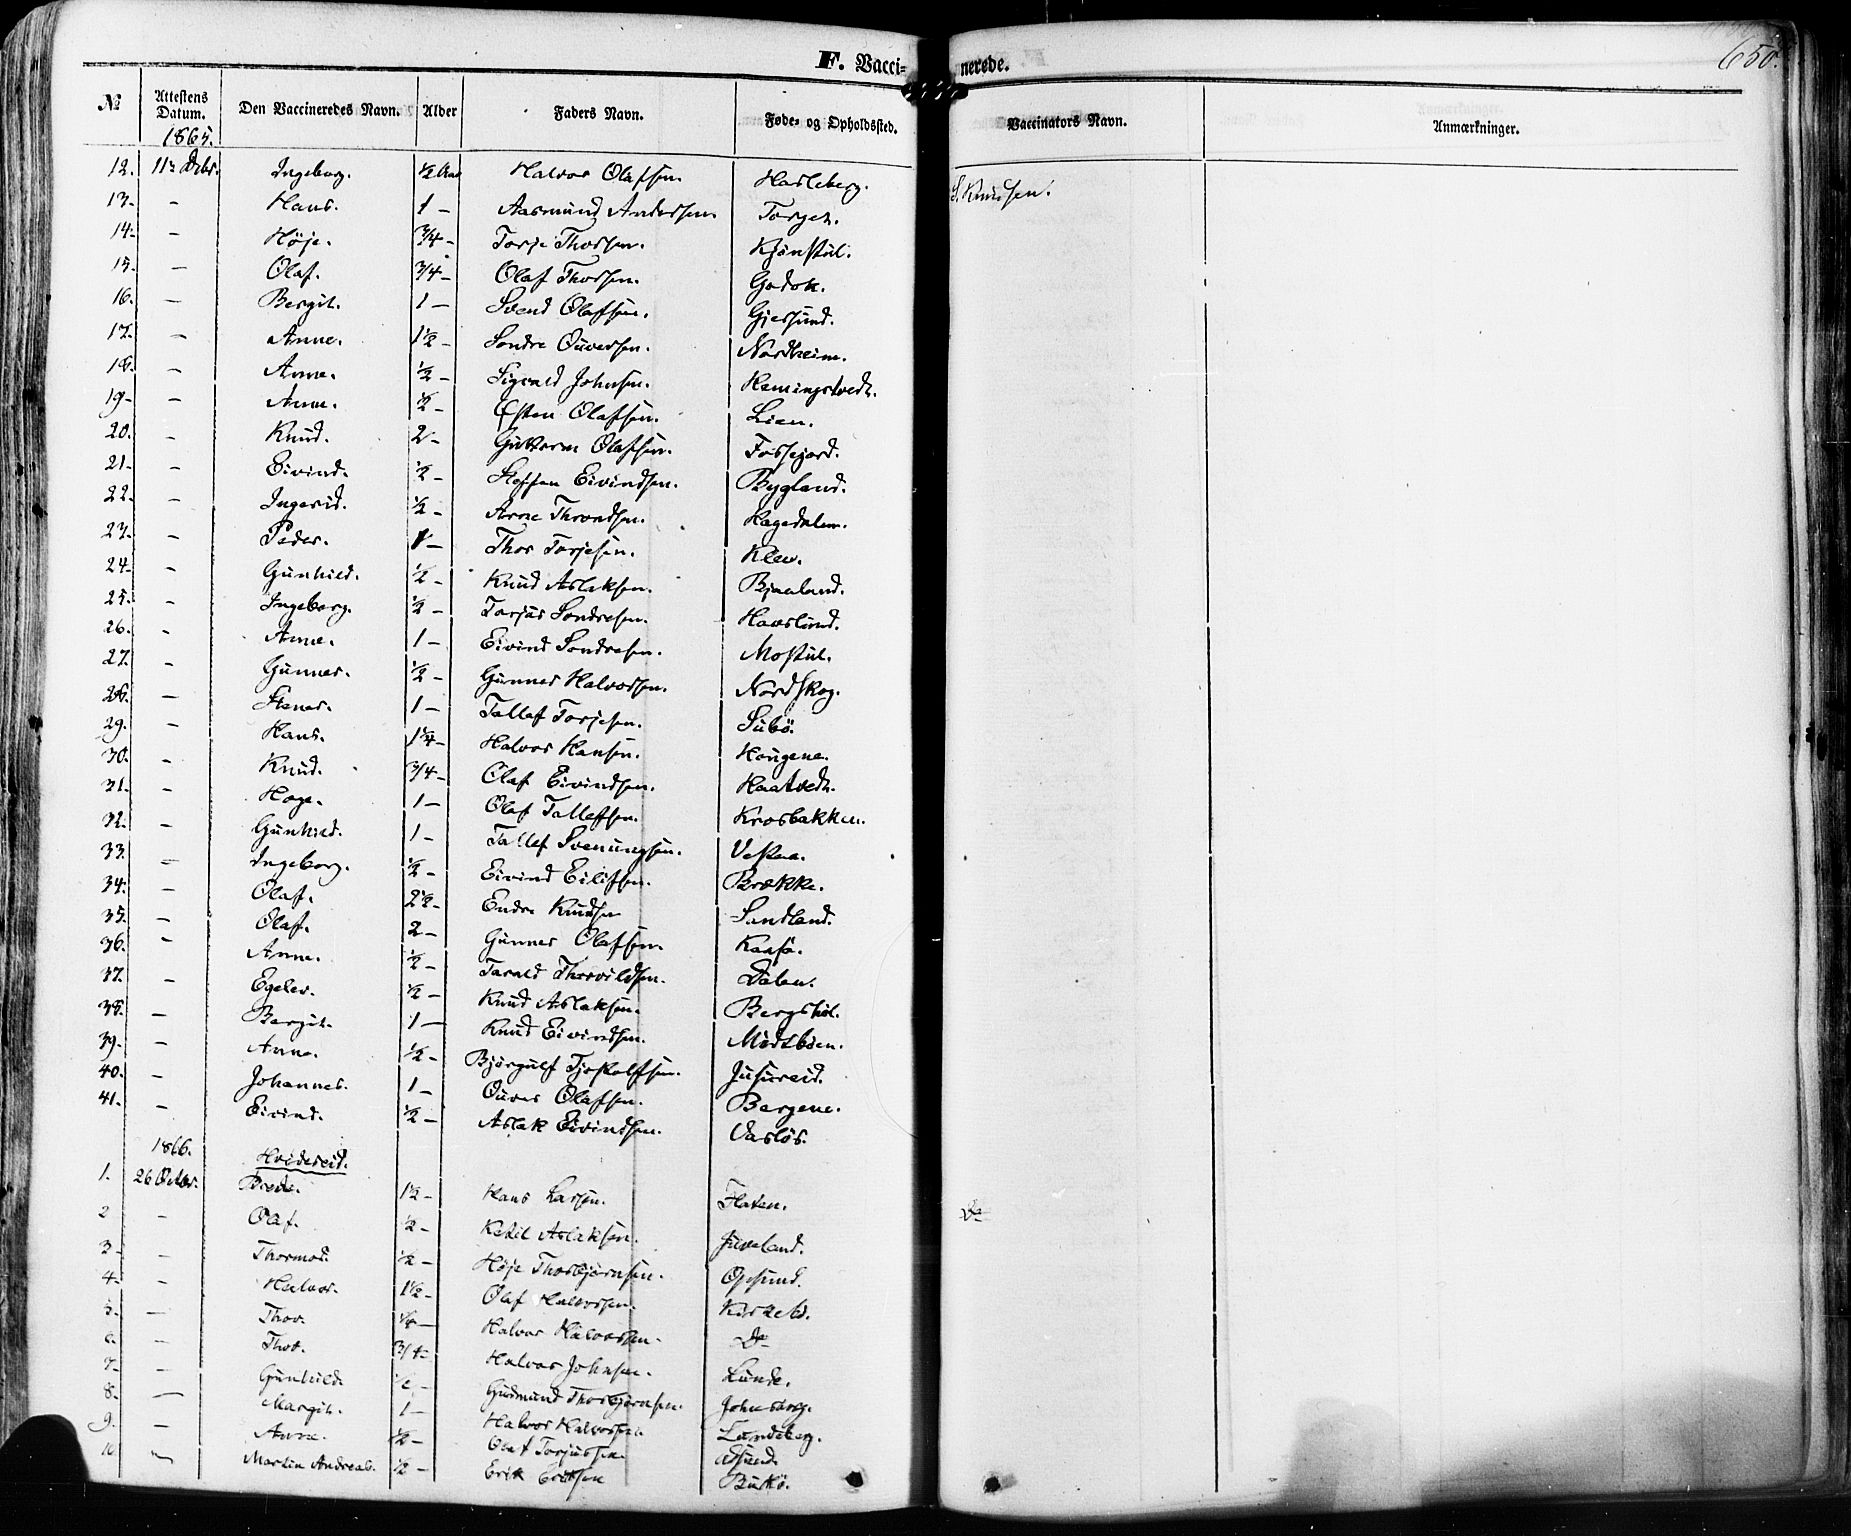 650.
F. Vaccinerede.
№ Attestens Datum. Den Vaccineredes Navn. Alder Faders Navn. Føde- og Opholdssted. Vaccinators Navn. Anmærkninger.
1865.
12. 11te Debr. Ingeborg. 1/2 Aar Halvor Olafsen. Harleberg. S. Knudsen.
13- - Hans. 1 - Aasmund Andersen. Torget.
14- - Høje. 3/4 - Torje Thorsen. Kjønstul.
15. - Olaf. 3/4 - Olaf Thorsen. Godok.
16. - Bergit. 1 - Svend Olafsen. Gjersund.
17. - Anne. 1 1/2 - Sondre Ouversen. Nordheim.
18. - Anne. 1/2 - Sigvald Johnsen. Kemingstvedt.
19- - Anne. 1/2 - Østen Olafsen. Lien.
20. - Knud. 2 - Guttorm Olafsen. Fossejord.
21- - Eivind. 1/2 - Steffen Eivindsen. Bygland.
22. - Ingerid. 1/2 - Arne Throndsen. Hagedalen.
23. - Peder. 1 - Thor Torjesen. Klev.
24- - Gunhild. 1/2 - Knud Aslaksen. Bjaaland.
25. - Ingeborg. 1/2 - Torjus Sondresen. Haverlund.
26. - Anne. 1 - Eivind Sondresen. Mostul.
27. - Gunner. 1/2 - Gunner Halvorsen. Nordskog.
28. - Stener. 1 - Tallef Torjesen. Subø.
29. - Hans. 1 1/4 - Halvor Hansen. Haugene.
30. - Knud. 3/4 - Olaf Eivindsen. Haatvedt.
31. - Hoge. 1 - Olaf Tallefsen. Krosbakken.
32. - Gunhild. 1 - Tallef Svenungsen. Vestaa.
33. - Ingeborg. 1/2 - Eivind Eilifsen. Brække.
34. - Olaf. 2 1/2 - Endre Knudsen Sandland.
35. - Olaf. 2 - Gunner Olafsen. Kaasa.
36. - Anne. 1/2 - Tarald Thorvildsen. Dalen.
37. - Egelev. 1/2 - Knud Aslaksen. Bergstul.
38. - Bergit. 1 - Knud Eivindsen. Midtbøen.
39. - Anne. 1/2 - Bjørgulf Tjostolfsen. Jusureid.
40. - Johannes. 1 - Ouver Olafsen. Bergene.
41. - Eivind. 1/2 - Aslak Eivindsen. Vasløs.
1866. Hvideseid.
1. 26 Octbr. Brede. 1 1/2 - Hans Larsen. Flaten. Do
2 - Olaf. 1/2 - Ketil Aslaksen. Juveland.
3- - Thormod. 1/2 - Høje Thorbjørnsen. Opsund.
4- - Halvor. 1 1/2 - Olaf Halvorsen. Kirkebø.
5. - Thov. 1/4 - Halvor Halvorsen. Do
6. - Thor. 3/4 - Halvor Johnsen. Lunde.
7- - Gunhild. 1/2 - Gudmund Thorbjørnsen. Johnsborg.
8. - Margit. 1 - Halvor Halvorsen. Lundeberg.
9. - Anne. 1/2 - Olaf Torjussen. Øsund.
10 - Martin Andreas. 1/2 - Erik Eriksen Buskø.